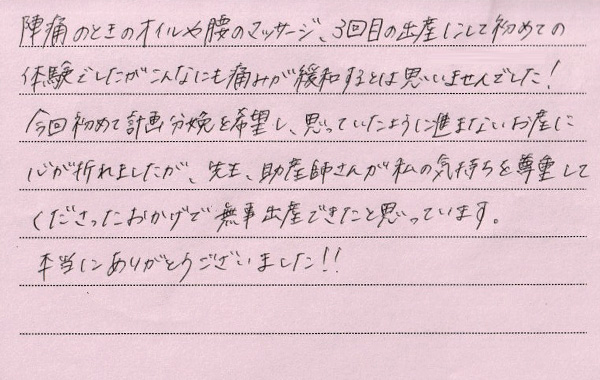 陣痛のときのオイルや腰のマッサージ、3回目の出産にして初めての
体験でしたがこんなにも痛みが緩和するとは思いませんでした!
今回初めて計画分娩を希望し、思っていたように進まないお産に
心が折れましたが、先生、助産師さんが私の気持ちを尊重して
くださったおかげで無事出産できたと思っています。
本当にありがとうございました!!